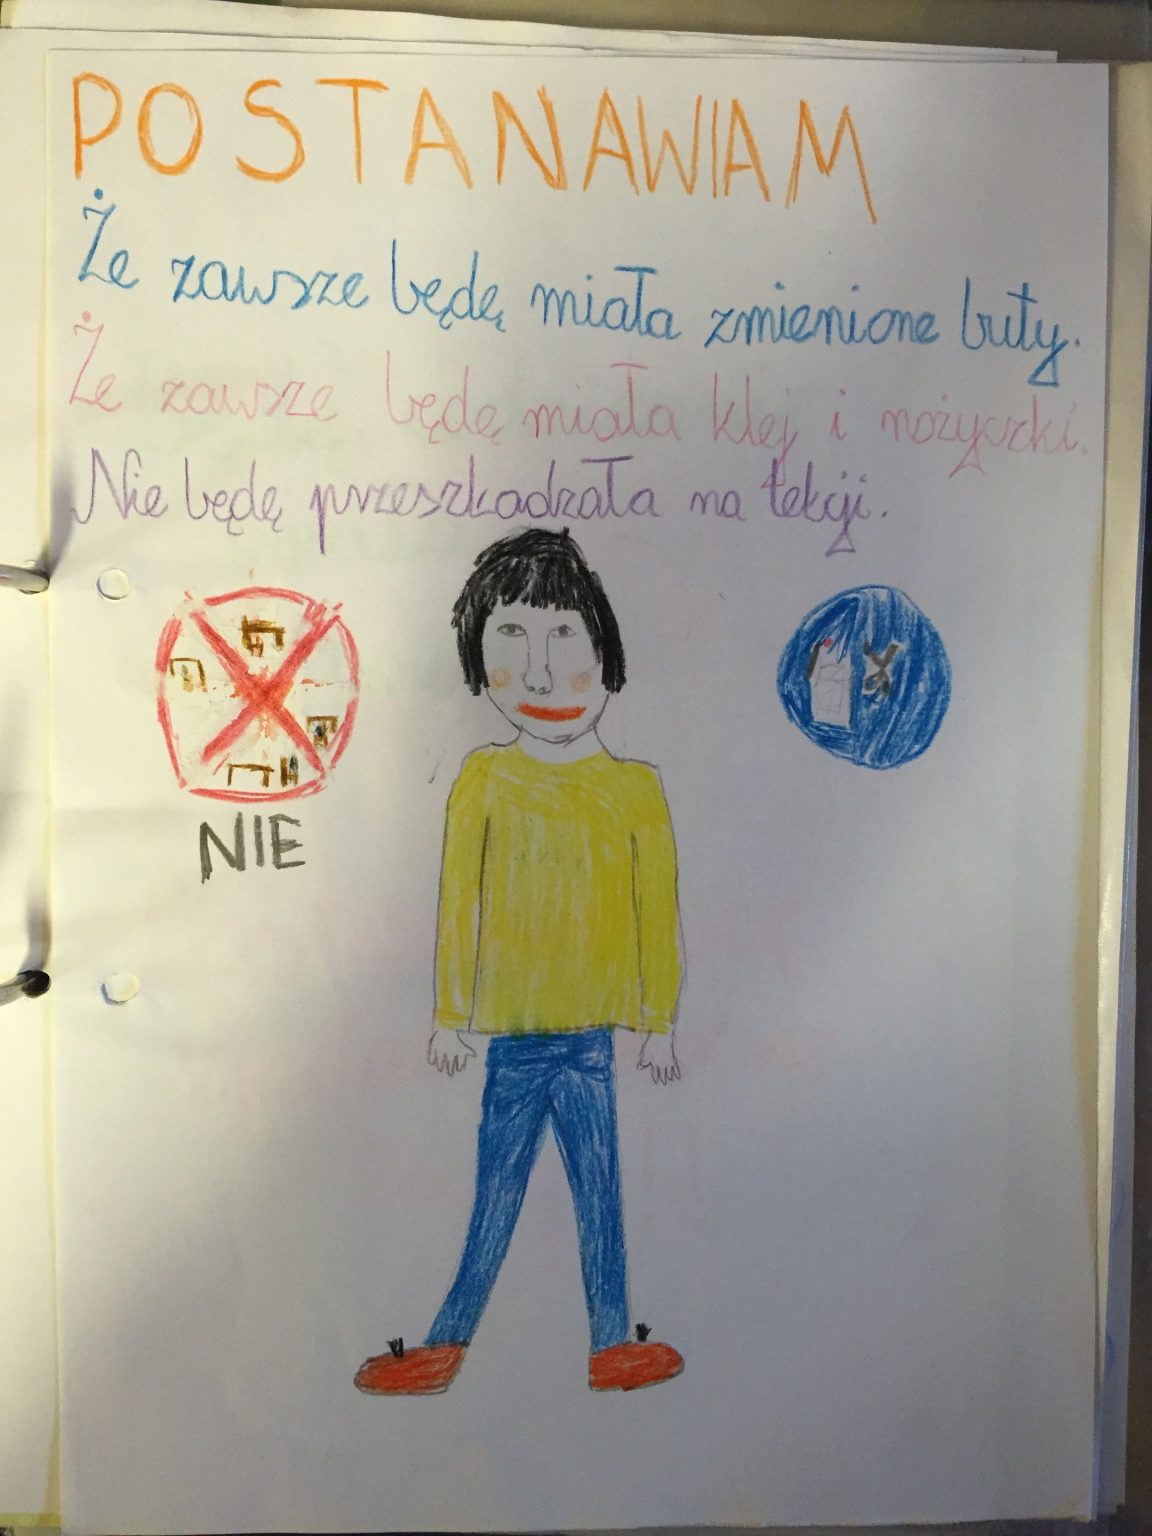 POSTANAWIAM
Że zawsze będę miała zmienione buty.
Że zawsze będę miała klej i nożyczki.
Nie będę przeszkadzała na lekcji.
NIE